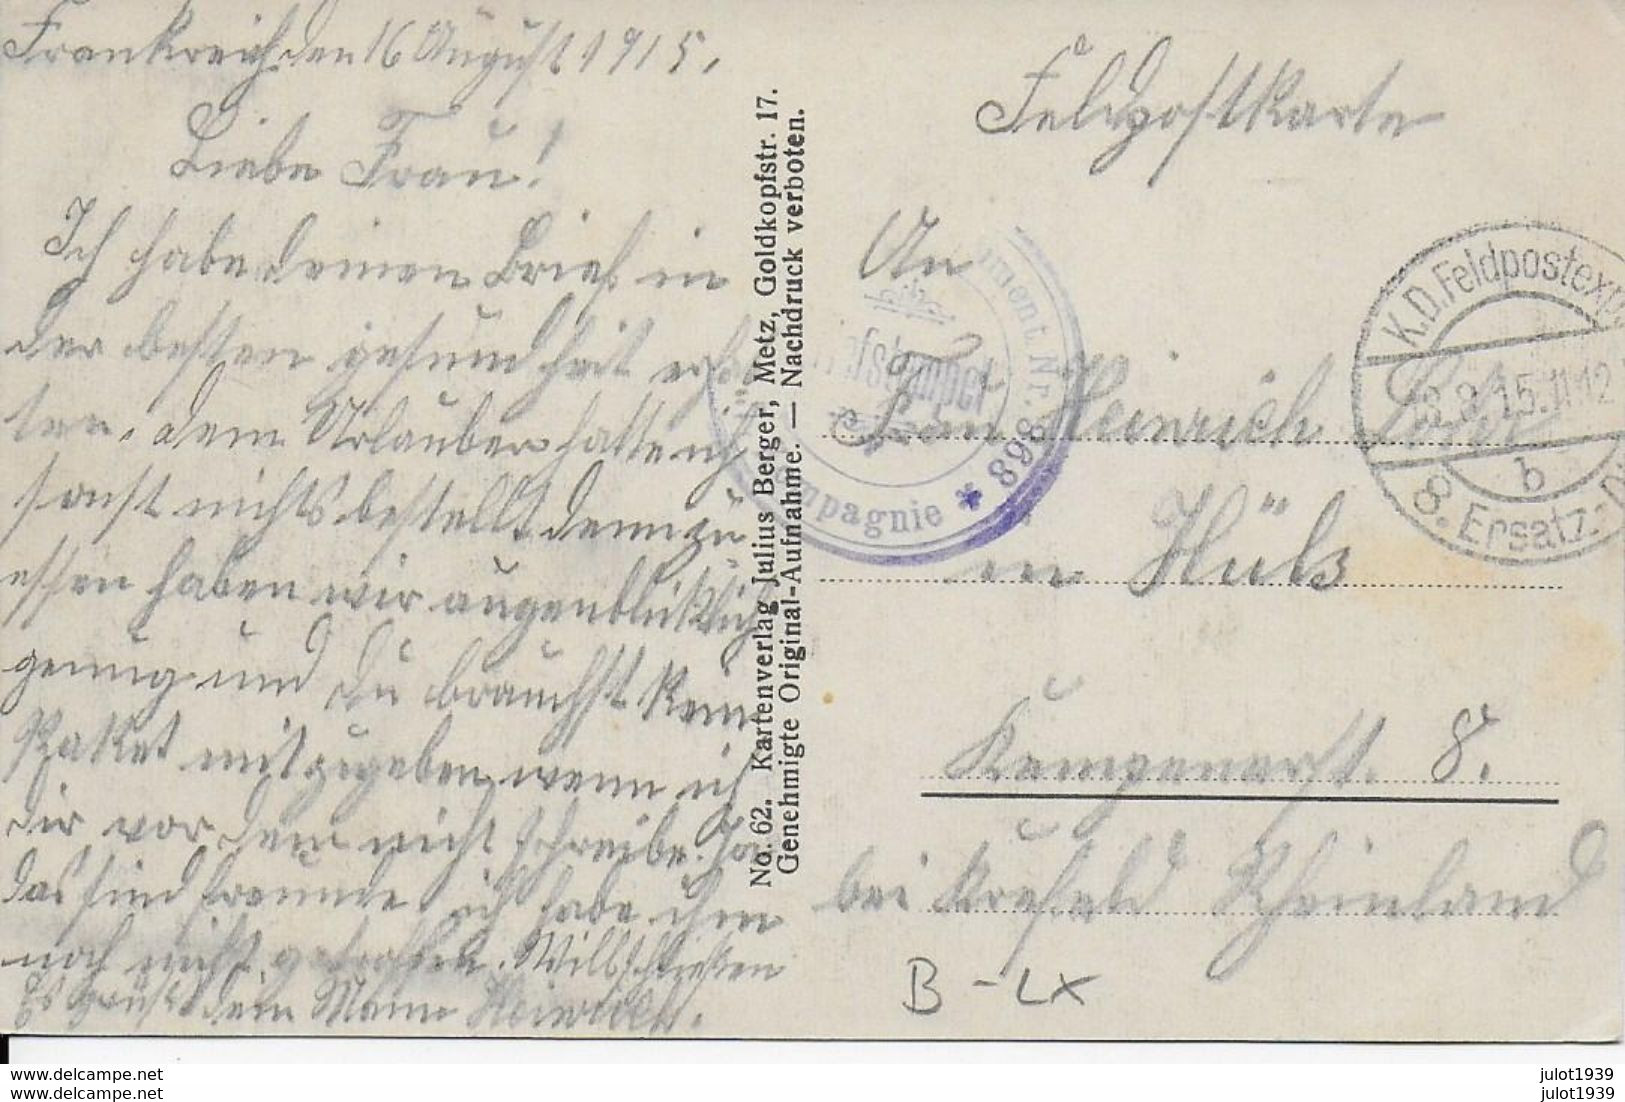 Frankreich den 16 August 1915.
Liebe Frau!
Ich habe deinen Brief in
der besten gesundheit erhal
ten. dem Urlauber hatte ich
sonst nichts bestellt denn zu
essen haben wir augenblicklich
genug und du brauchst kein
Paket mitzugeben wenn ich
dir vor dem nicht schreibe. Ja
das sind Freunde, ich habe ihm
noch nicht getroffen. Will schließen
Es grüßt dein Mann Heinrich.
No. 62. Kartenverlag Julius Berger, Metz, Goldkopfstr. 17.
Genehmigte Original-Aufnahme. — Nachdruck verboten.
Feldpostkarte
An
Frau Heinrich
in Hüls
Kempenerst. 8.
bei Krefeld Rheinland
B - LX
ment Nr. 368
Briefstempel
mpagnie *
K.D. Feldpostexp
8.15. 11-12
b
8. Ersatz-D
www.delcampe.net
www.delcampe.net
julot1939
julot1939